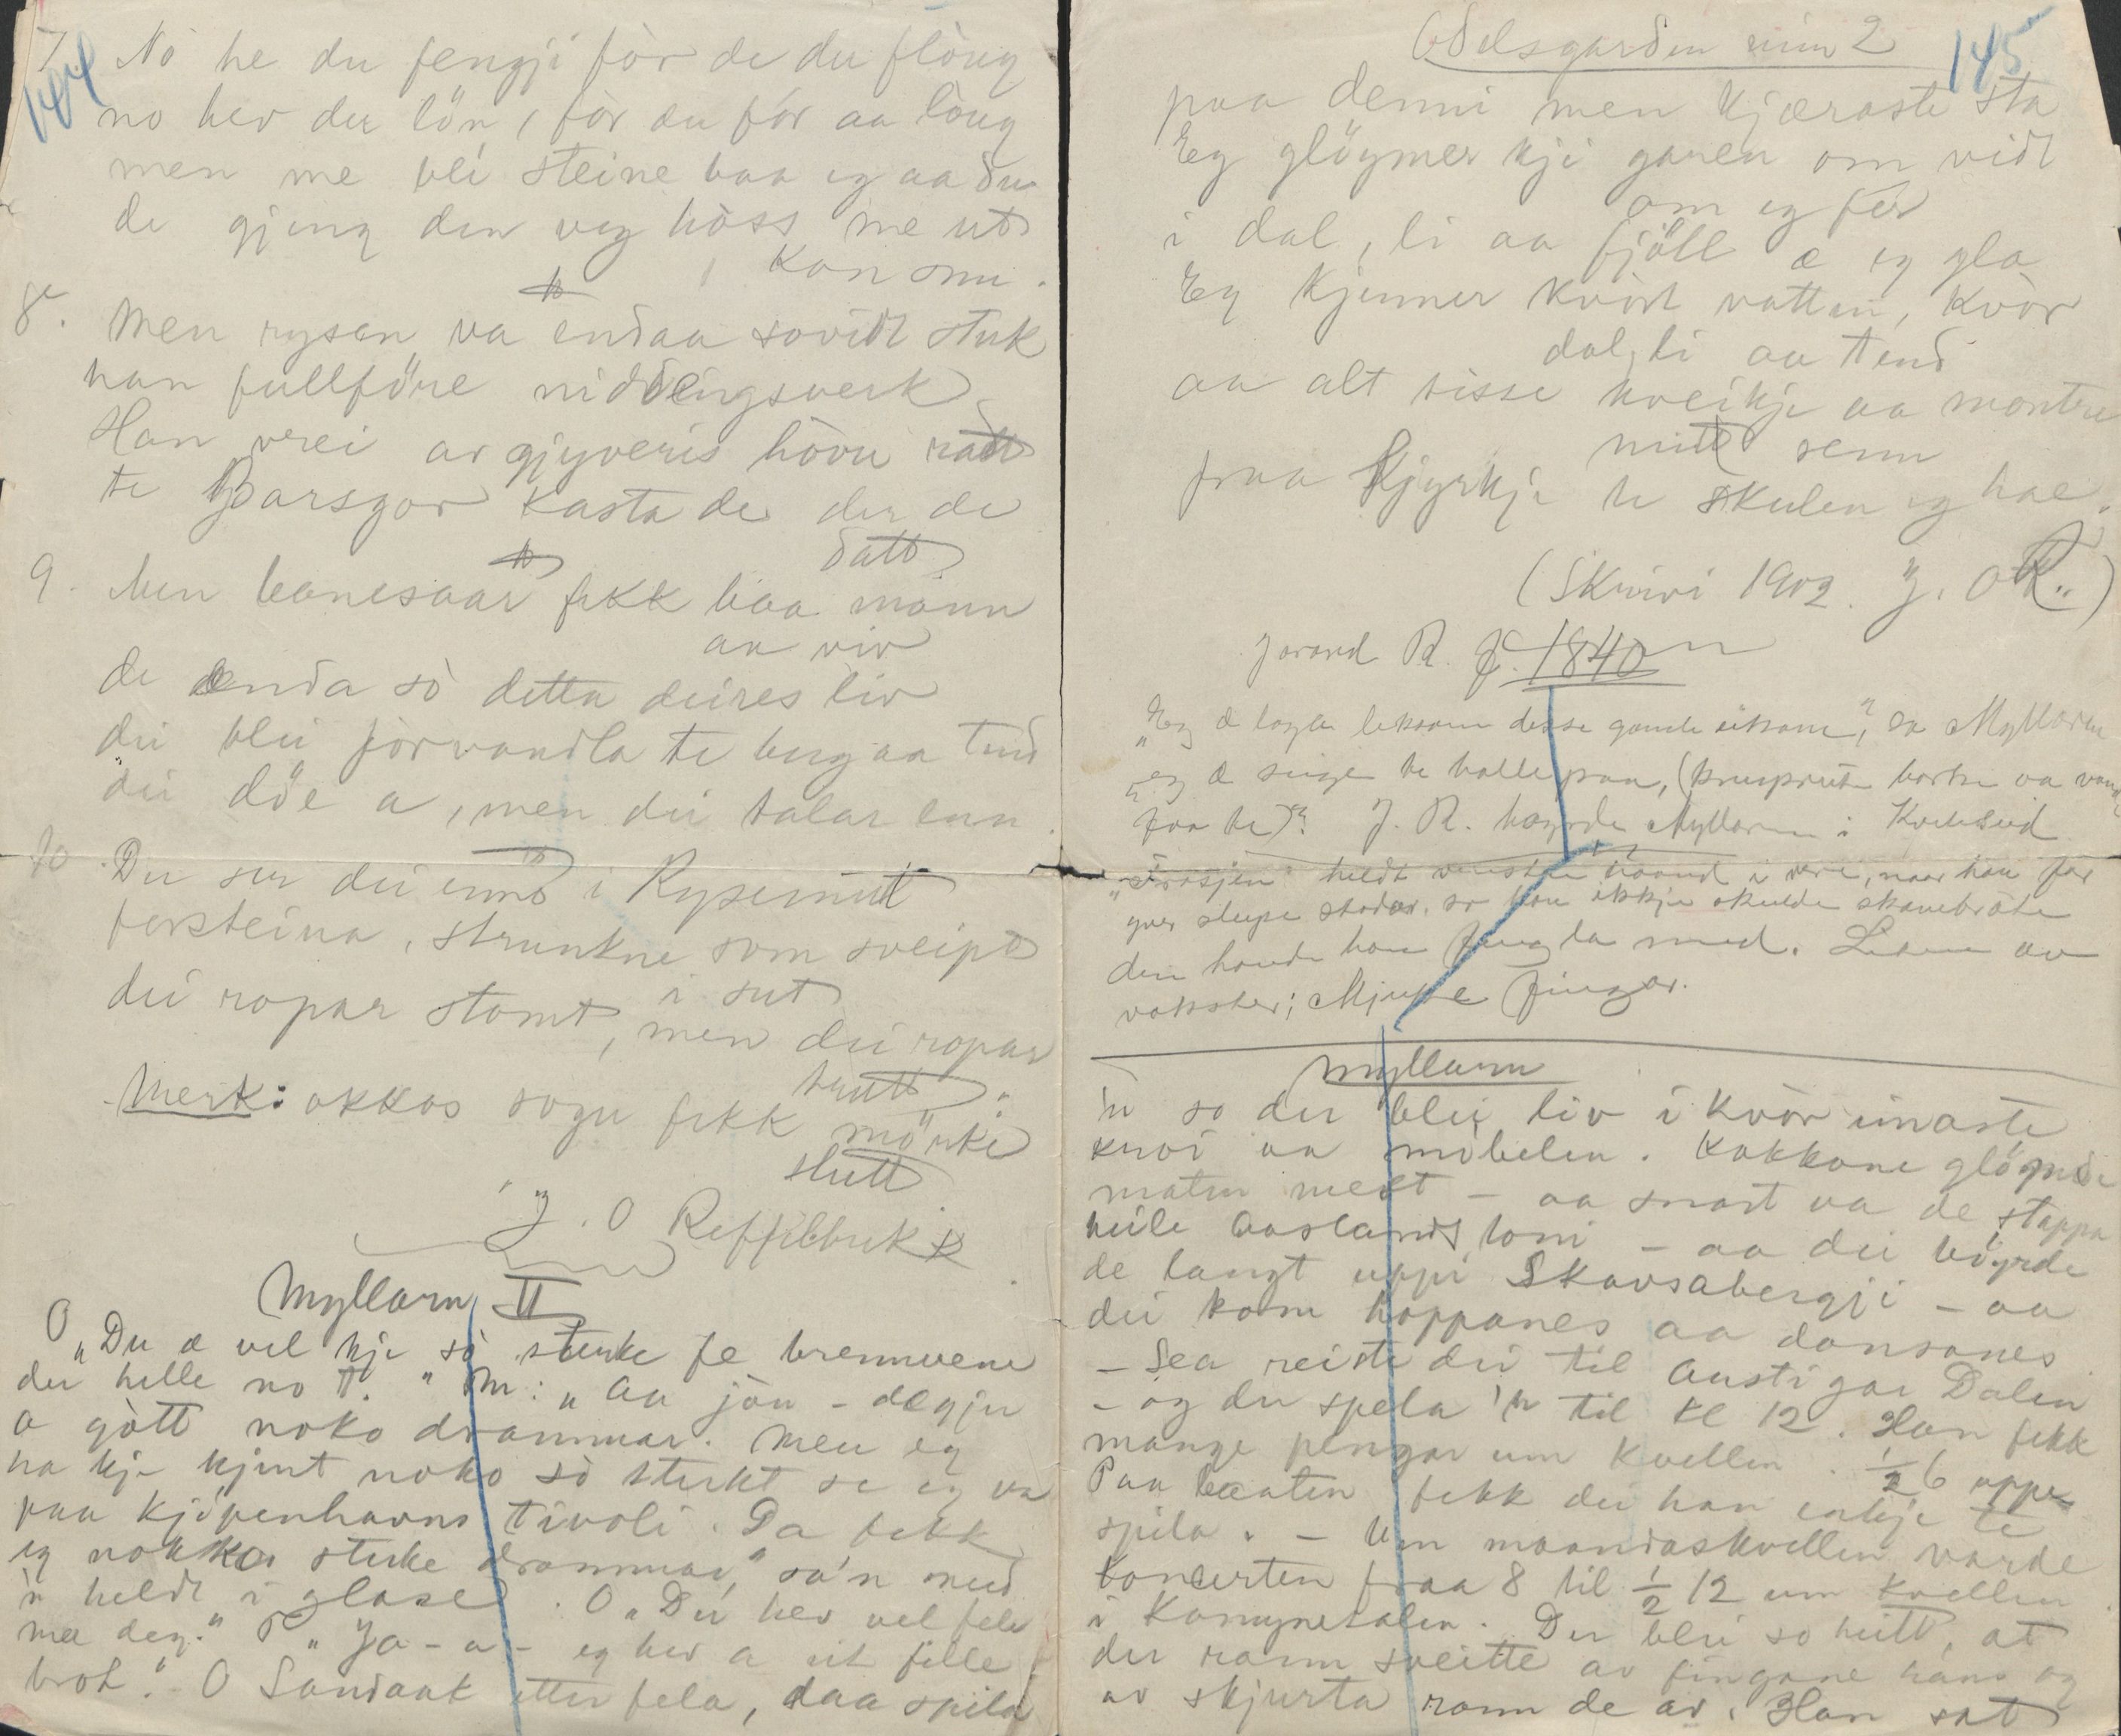 144
7. No he du fengji før de du flöug
no hev du lön, før du før aa löug
men me bli steine baa eg aa du
de gjeng den veg höss me ut
kan snu.
8. Men rysen va endaa sovidt sterk
han fullføre niddingsverk
Han vrei av gjyveris hòvu ratt
te Barsgar kasta de der de
datt
9. Men banesaar fekk baa mann
aa viv
de enda sò detta deires liv
dei blei forvandla te berg aa tind
dei döe a, men dei talar enn.
10. Du ser dei ennò i Rysenut
forsteina, strunkne som sveipt
i sut
dei ropar stomt, men dei ropar
trutt.
Merk: okkos sogu fekk mörke
slutt
J. O Reffilbuk
Myllarn II
O „Du æ vel kje sò sterke fe brennvene
du helle no t." M: „Aa jöu - dægju
a gòtt noko drammar. Men eg
ha kje kjent noko sò sterkt se eg va
paa Kjöpenhavns tivoli. Da fekk
eg nokka sterke drammar," sa'n med
'n heldt i glase. O „Du hev vel fele
me deg." „Ja - a - eg hev a eit fille
brot." O Sandaak etter fela, daa spila
145
Odelsgarden min 2
paa denni men kjæraste sta
Eg glöymer kji garen om vidt
om eg fer
i dal, li aa fjöll æ eg gla
Eg kjenner kvört vatten, kvör
dal, li aa tind
aa alt sisse kveikje aa montre
mitt senn
fraa Kjyrkje te skulen eg hae.
(Skrivi 1902. J. O R.)
Jorand R. f. 1840
„Eg æ laga leksom desse gamle uksane", sa Myllarn
„eg æ seige te halle paa, ( te) " J. R. høyrde Myllarn i Kviteseid
heldt venstre haand i veri, naar han for
yver sleipe stader, so han ikkje skulde skambrote
den hande han fingla med. Liten av
vokster; Mjuke fingar.
Myllarn
'n so der blei liv i kvör einaste
knoi aa möbelen. Kokkone glöymde
maten mest - aa snart va de stappa
heile Aaslands toni - aa dei höyrde
de langt uppi Skavsabergji - aa
dei kom hoppanes aa dansanes
- Sea reiste dei til Austigar Dalen
- og der spela 'n til kl 12. Han fekk
mange pengar um kvellen. 1/2 6 uppe
Paa baaten fekk dei han inkje te
spila. - Um maandaskvellen varde
koncerten fraa 8 til 1/2 12 um kvellen.
i Komynesalen. Der blei so heitt, at
der rann sveitte av fingane hans og
av skjurta rann de av. Han sat